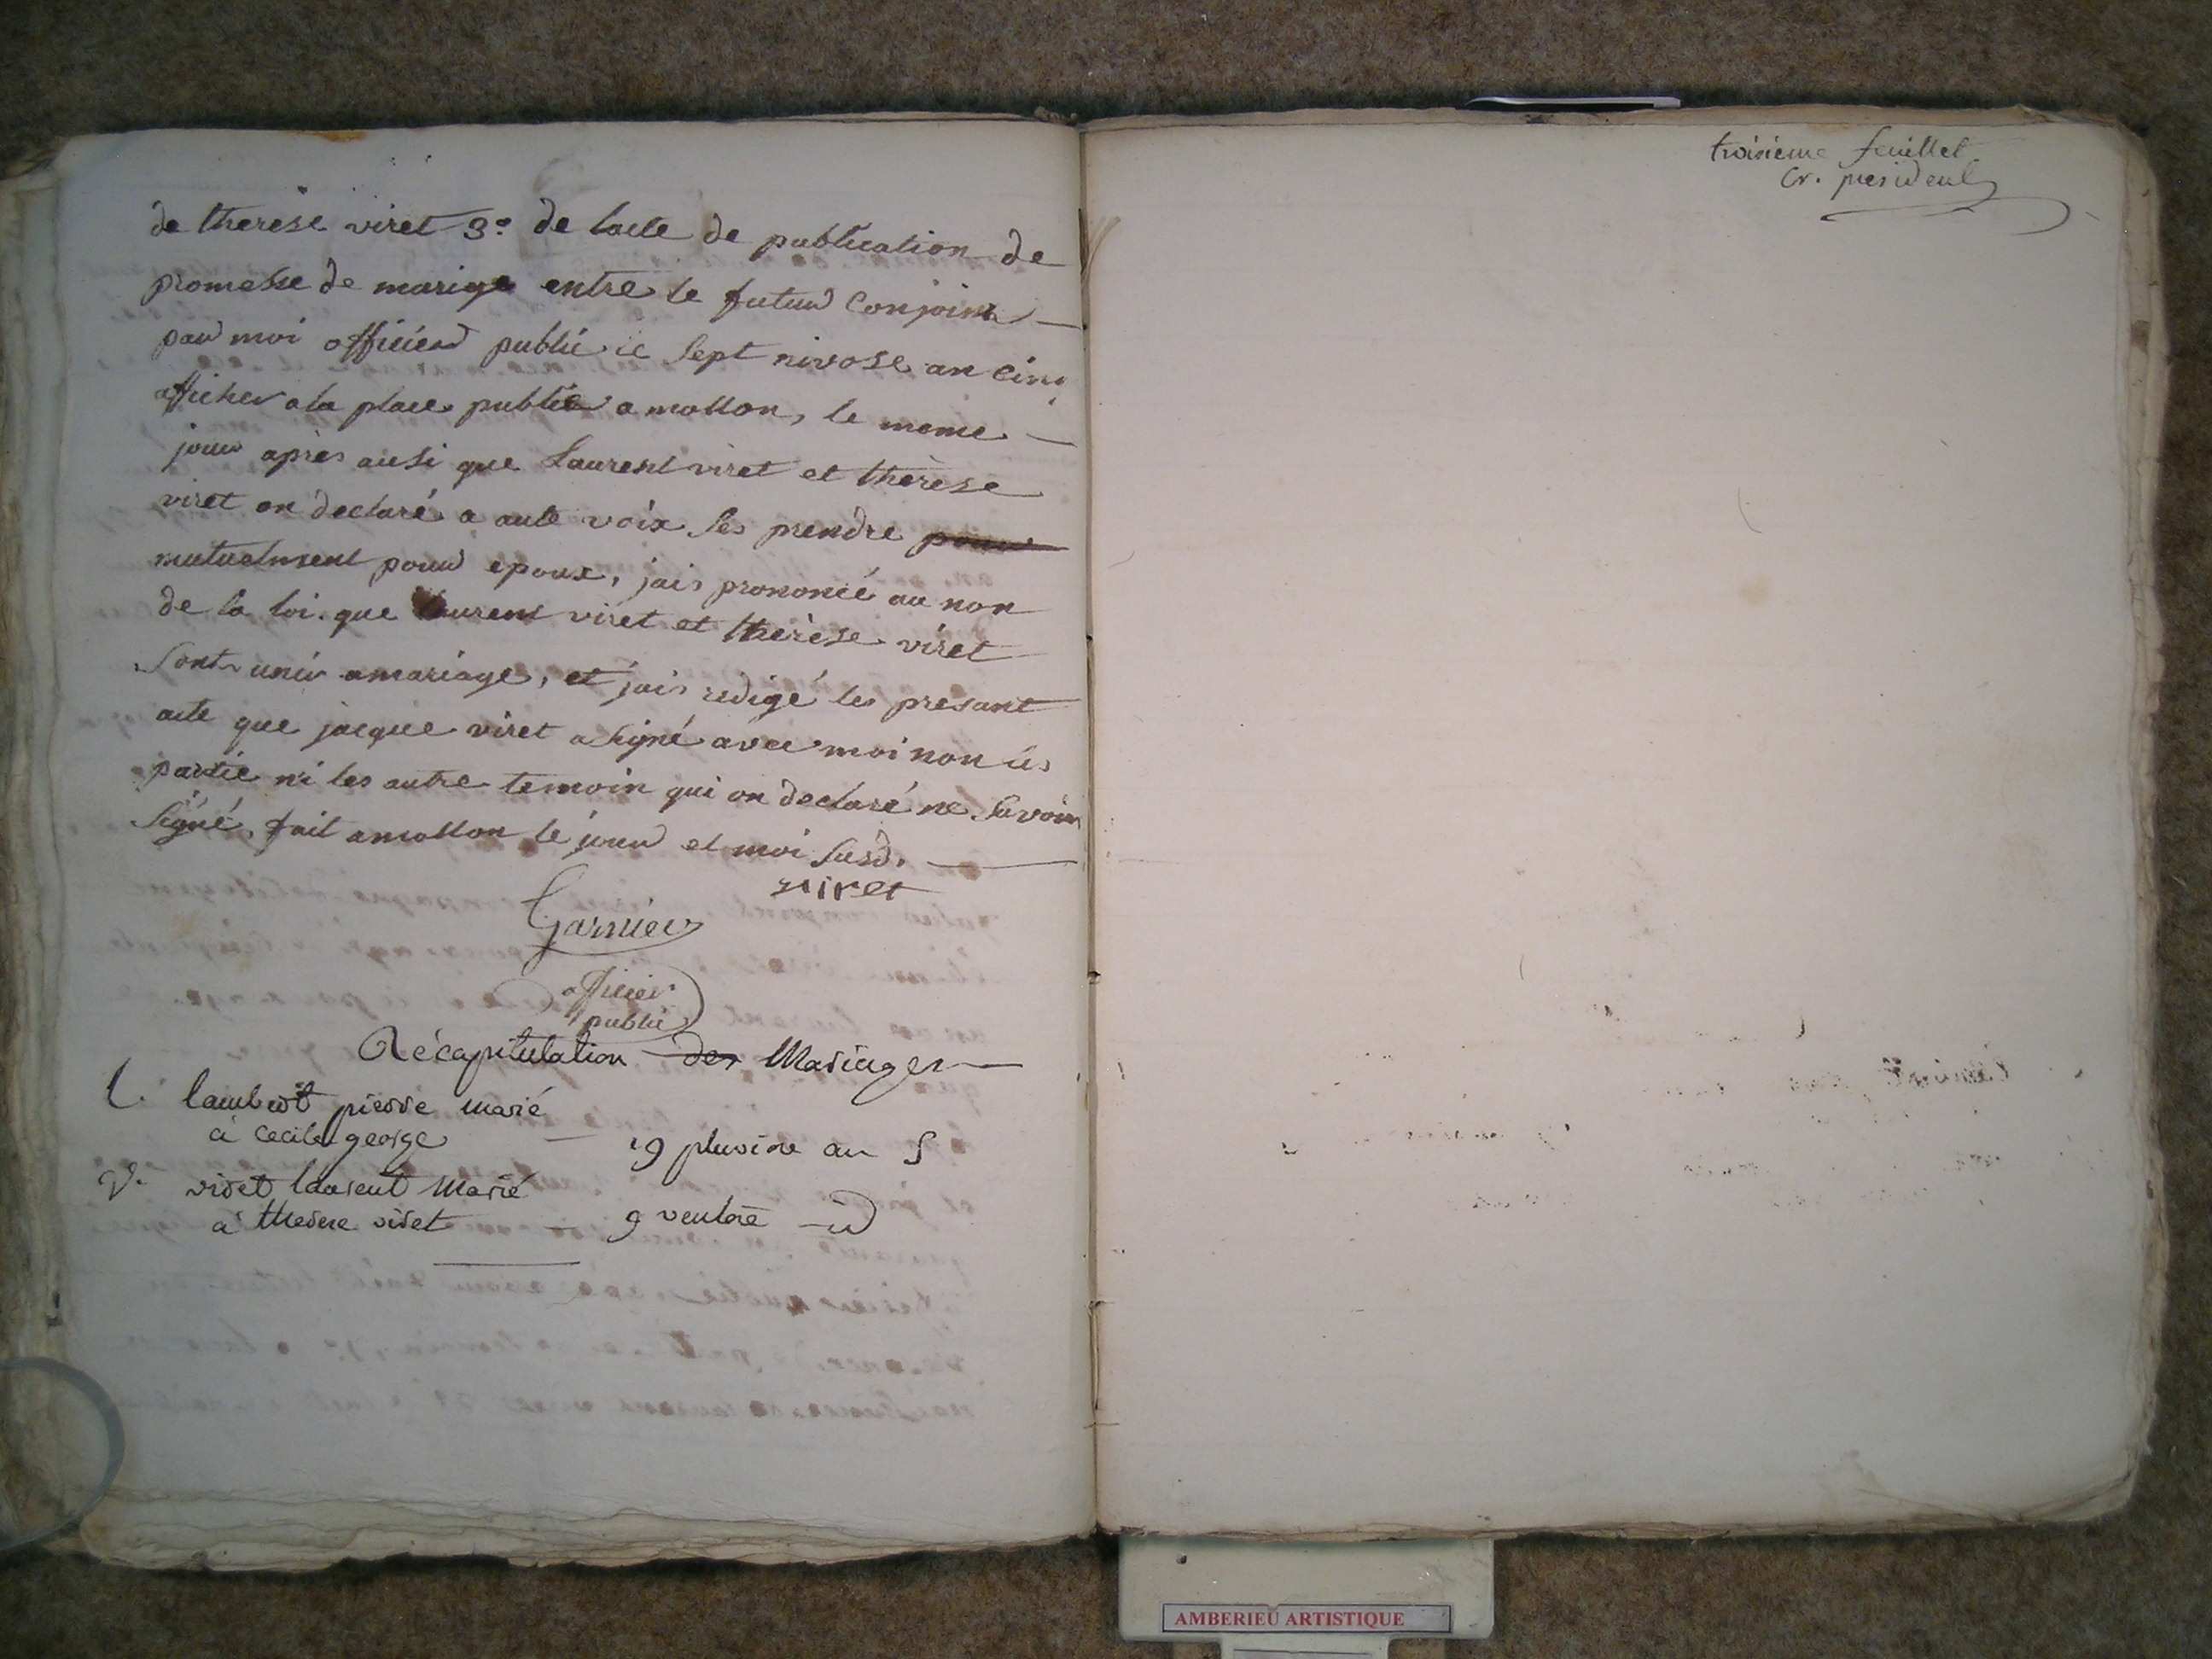 de therese viret 3.o de lacte de publication de
promesse de mariage entre le futur conjoint
par moi officier public le sept nivose an cinq
afficher a la place public a mollon, le meme
jour après ausi que Laurent viret et thèrese
viret on declaré a aute voix ses prendre pour
mutuelment pour epoux, jais prononcé au non
de la loi. que laurent viret et thèrèse viret
sont unir a mariage, et jais redigé les presant
acte que jacque viret a signé avec moi non les
partie ni les autre temoin qui on declaré ne savoir
signé, fait a mollon le jour et moi susd.
viret
Garnier
officier
public
Récapitulation des Mariages
L. lambert pierre marié
à cecile george — 19 pluviose an 5
V. viret laurent Marié
a therese viret — 9 ventose id
troisieme feuillet
Cr. president
AMBERIEU ARTISTIQUE